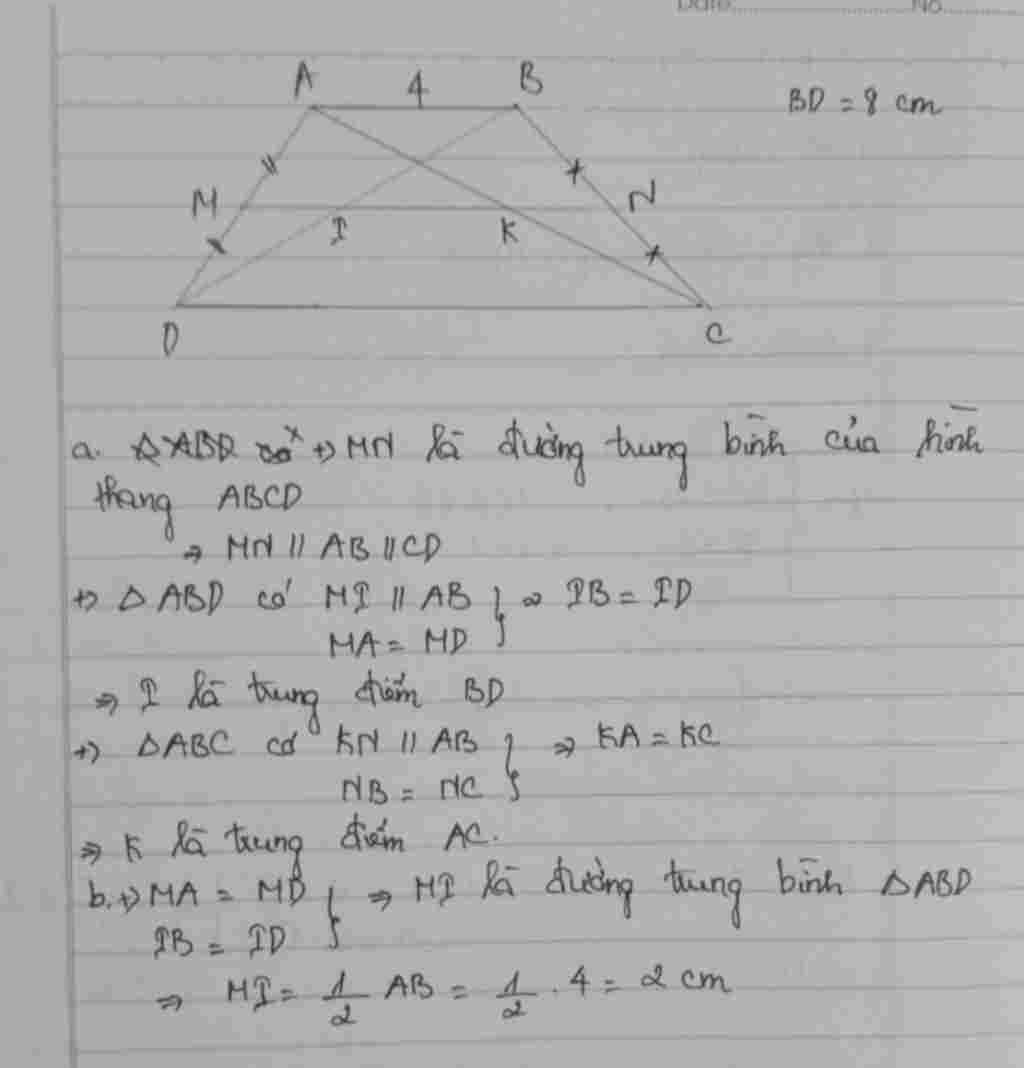 Date No
A 4 B
BD = 8 cm
M N
I K
D C
a. △ABD có +) MN là đường trung bình của hình
thang ABCD
⇒ MN // AB // CD
+) △ ABD có MI // AB } ⇒ IB = ID
MA = MD
⇒ I là trung điểm BD
+) △ABC có KN // AB } ⇒ KA = KC
NB = NC
⇒ K là trung điểm AC.
b. +) MA = MD } ⇒ MI là đường trung bình △ABD
IB = ID
⇒ MI = 1/2 AB = 1/2 . 4 = 2 cm